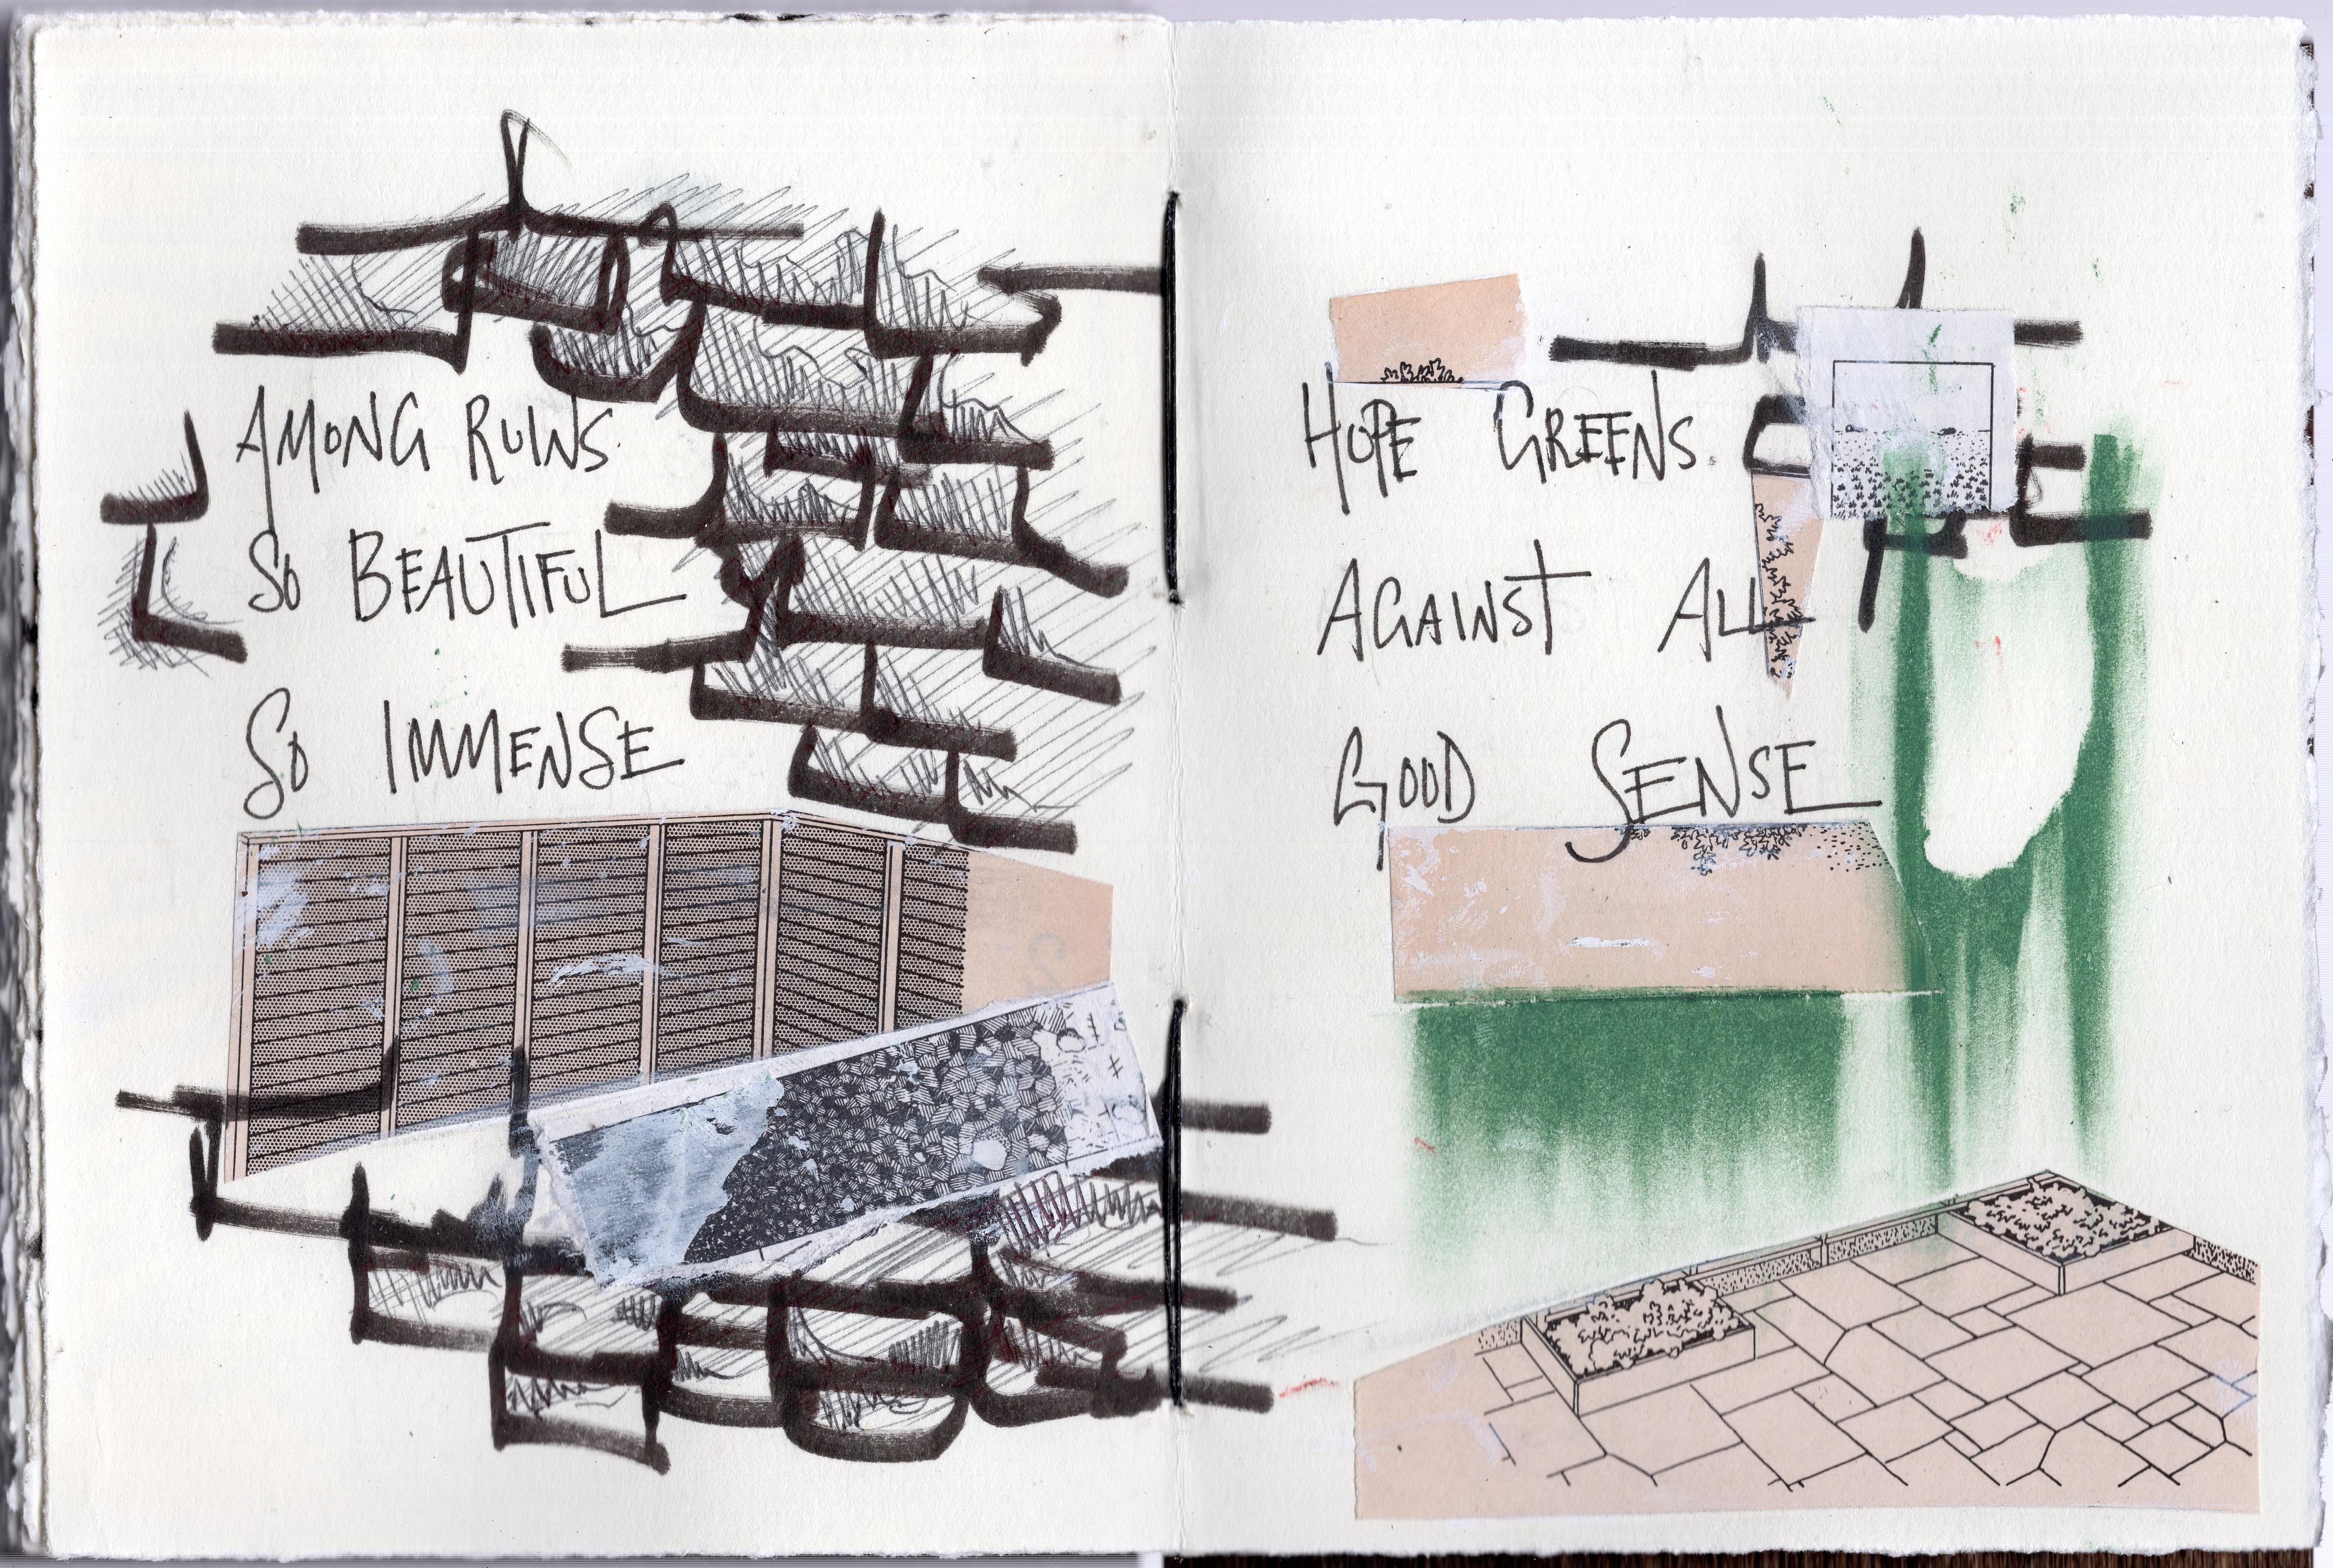 AMONG RUINS
SO BEAUTIFUL
SO IMMENSE
HOPE GREENS
AGAINST ALL
GOOD SENSE